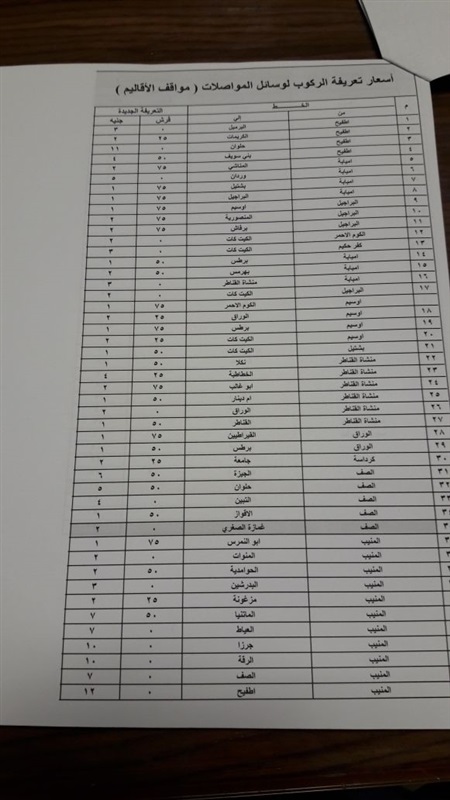 أسعار تعريفة الركوب لوسائل المواصلات ( مواقف الأقاليم )
م الخط التعريفة الجديدة
من إلي قرش جنيه
١ اطفيح البرميل ٠ ٣
٢ اطفيح الكريمات ٢٥ ٢
٣ اطفيح حلوان ٠ ١١
٤ اطفيح بني سويف ٥٠ ٤
٥ امبابة المناشي ٧٥ ٢
٦ امبابة وردان ٠ ٥
٧ امبابة بشتيل ٧٥ ١
٨ امبابة البراجيل ٧٥ ١
٩ البراجيل اوسيم ٧٥ ١
١٠ البراجيل المنصورية ٧٥ ٢
١١ البراجيل برقاش ٧٥ ٢
١٢ الكوم الاحمر الكيت كات ٠ ٢
١٣ كفر حكيم الكيت كات ٠ ٣
١٤ امبابة برطس ٥٠ ١
١٥ امبابة بهرمس ٥٠ ٢
١٦ امبابة منشاة القناطر ٠ ٣
١٧ البراجيل الكيت كات ٠ ٢
اوسيم الكوم الاحمر ٧٥ ١
١٨ اوسيم الوراق ٢٥ ٢
١٩ اوسيم برطس ٧٥ ١
٢٠ اوسيم الكيت كات ٢٥ ٢
٢١ بشتيل الكيت كات ٥٠ ١
٢٢ منشاة القناطر نكلا ٥٠ ١
٢٣ منشاة القناطر الخطاطبة ٢٥ ٤
٢٤ منشاة القناطر ابو غالب ٧٥ ٢
٢٥ منشاة القناطر ام دينار ٥٠ ١
٢٦ منشاة القناطر الوراق ٠ ٢
٢٧ منشاة القناطر القناطر ٥٠ ١
٢٨ الوراق القيراطيين ٧٥ ١
٢٩ الوراق برطس ٥٠ ١
٣٠ كرداسة جامعة ٢٥ ٢
٣١ الصف الجيزة ٥٠ ٦
٣٢ الصف حلوان ٥٠ ٥
الصف التبين ٠ ٤
الصف الاقواز ٥٠ ١
الصف غمازة الصغري ٠ ٢
المنيب ابو النمرس ٧٥ ١
المنيب المنوات ٠ ٢
المنيب الحوامدية ٥٠ ٢
المنيب البدرشين ٠ ٣
المنيب مزغونة ٢٥ ٢
المنيب الماتنيا ٥٠ ٧
المنيب العياط ٠ ٧
المنيب جرزا ٠ ١٠
المنيب الرقة ٠ ١٠
المنيب الصف ٠ ٧
المنيب اطفيح ٠ ١٢